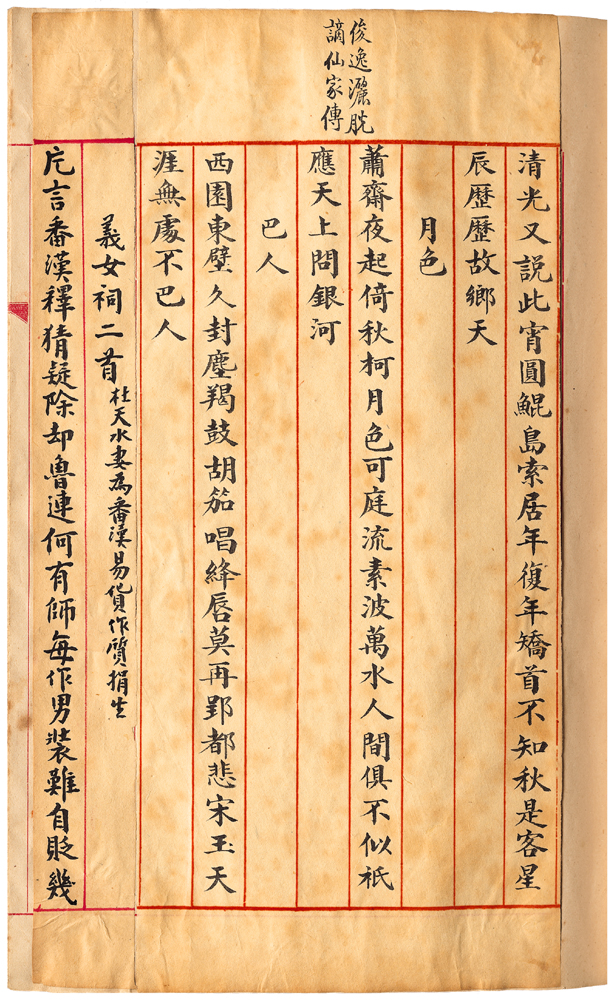 俊逸灑脫
謫仙家傳
清光又說此宵圓鯤島索居年復年矯首不知秋是客星
辰歷歷故鄉天
月色
蕭齋夜起倚秋柯月色可庭流素波萬水人間俱不似祇
應天上問銀河
巴人
西園東壁久封塵羯鼓胡笳唱絳唇莫再郢都悲宋玉天
涯無處不巴人
義女祠二首 杜天水妻為番漢易貨作質捐生
片言番漢釋猜疑除却魯連何有師每作男裝難自貶幾